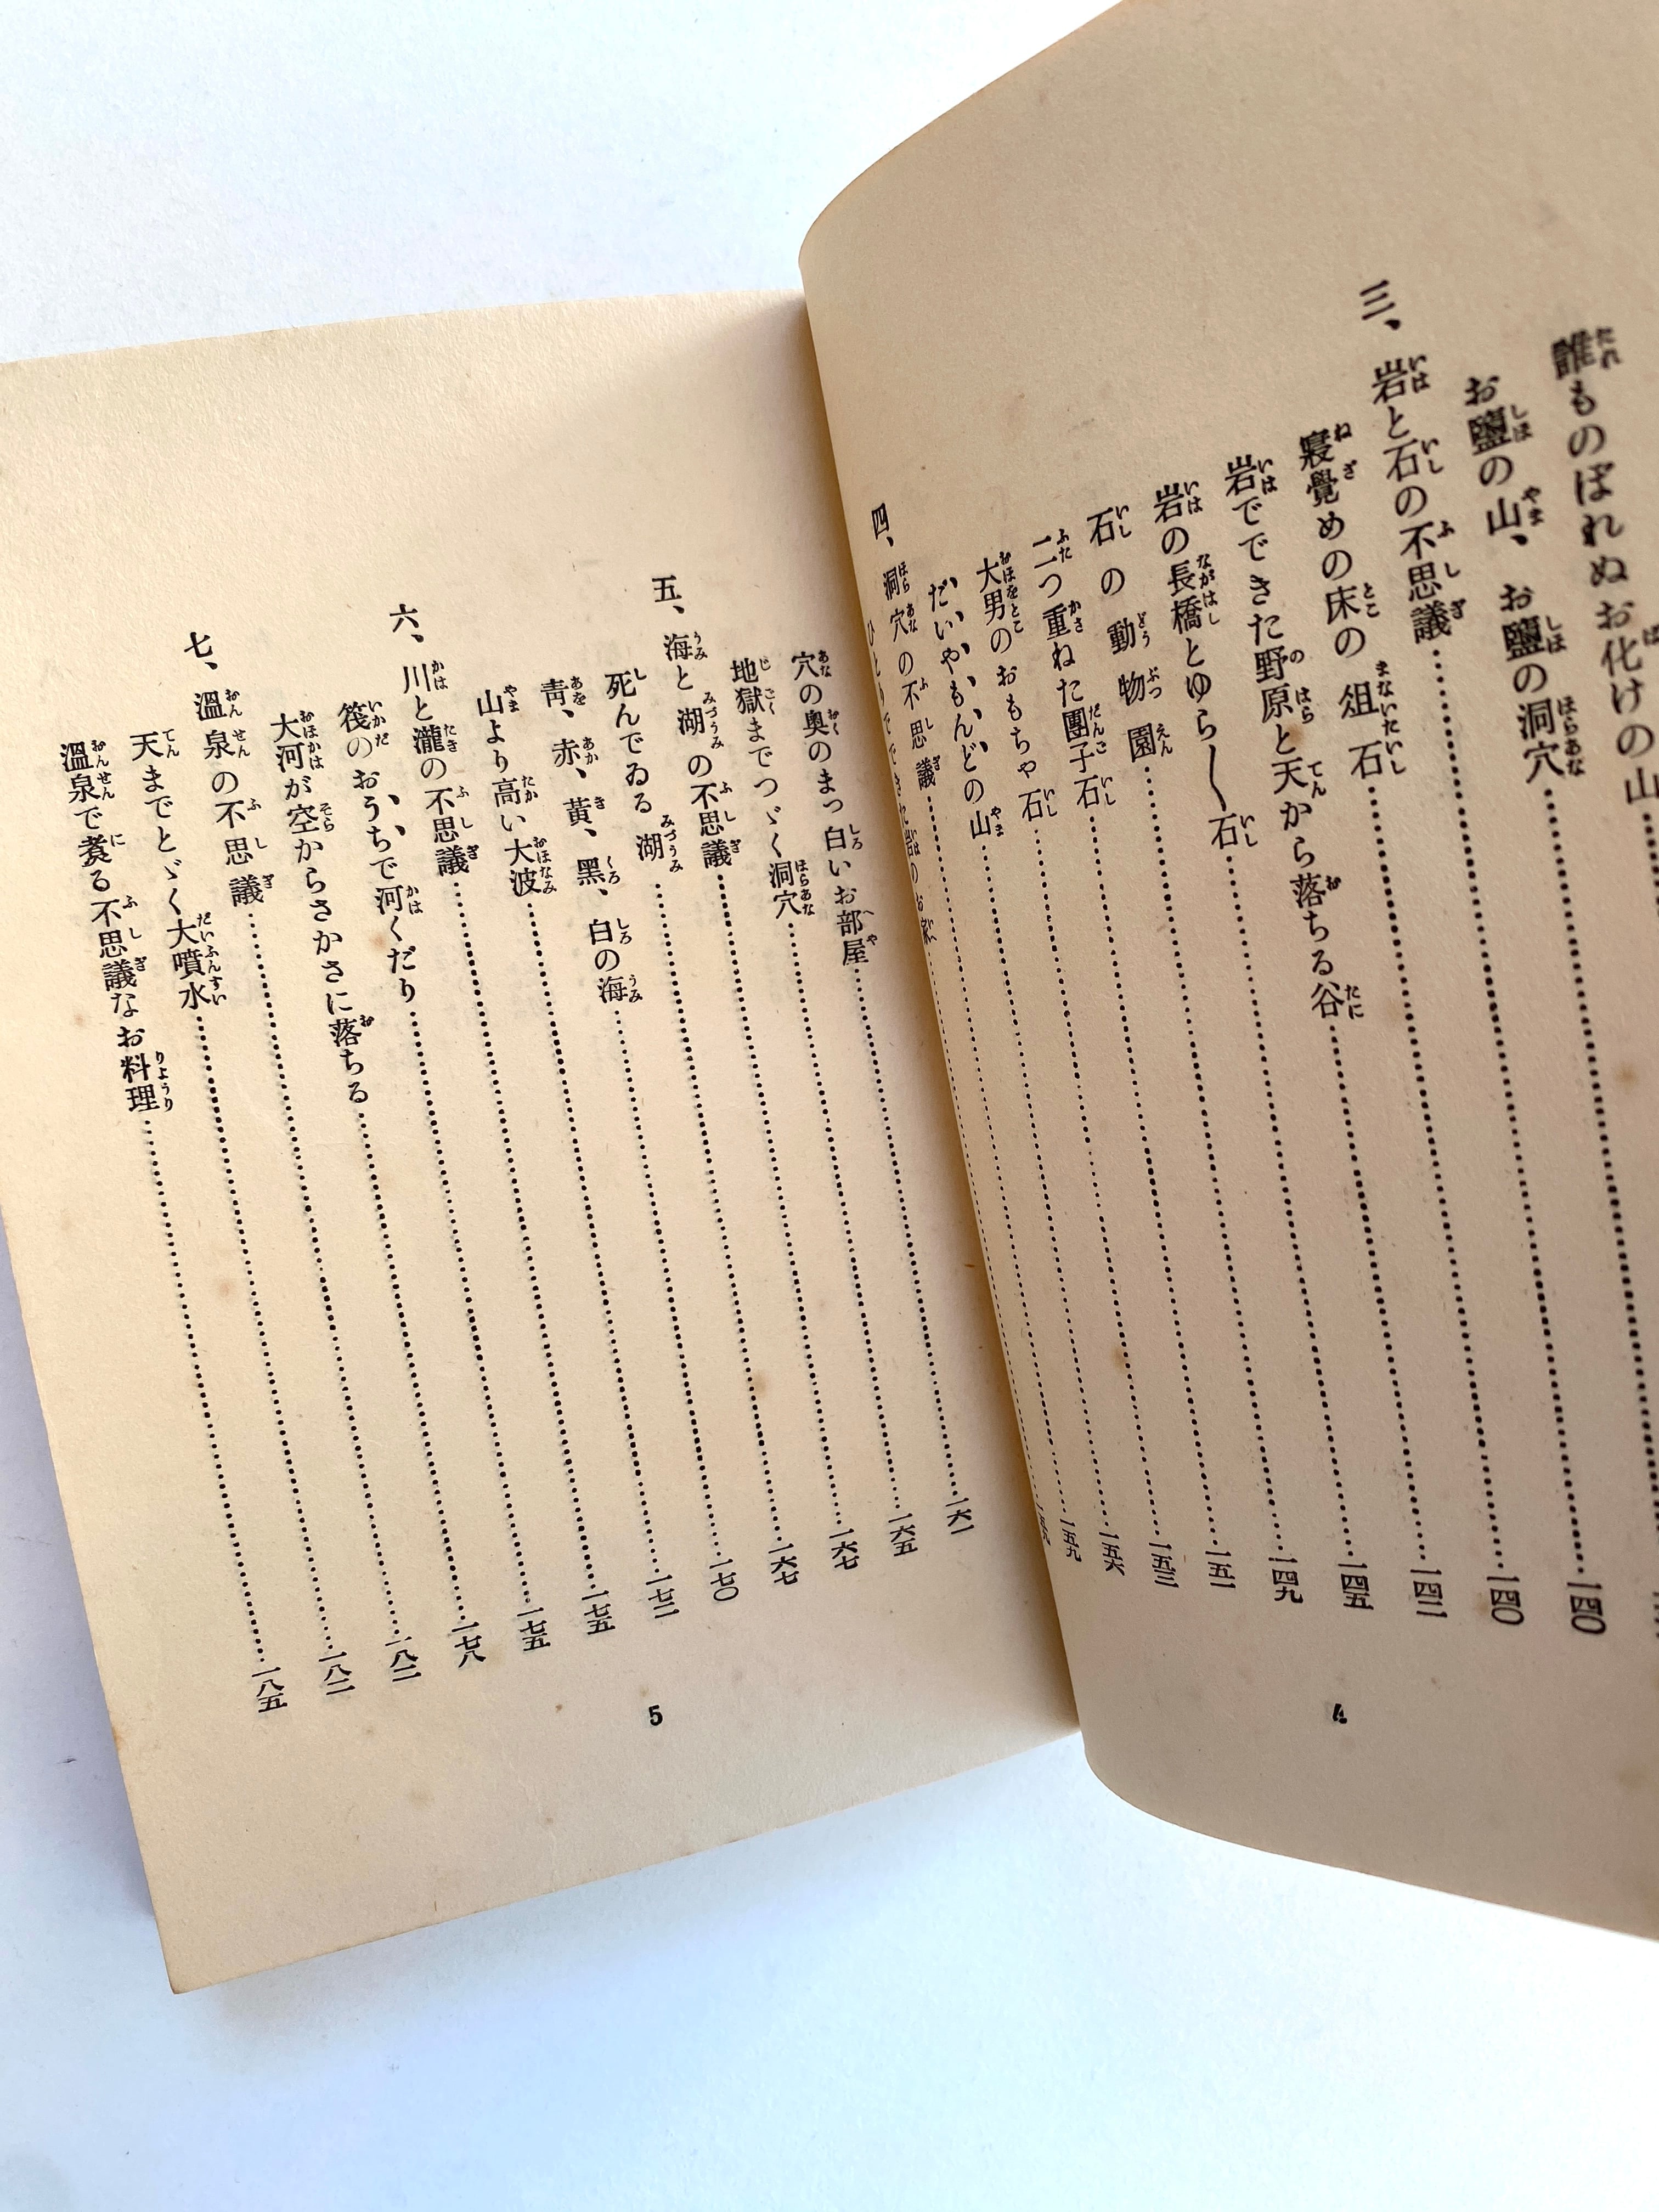 誰ものぼれぬお化けの山
お鹽の山、お鹽の洞穴……一四〇
三、岩と石の不思議……一四〇
寢覺めの床の俎石……一四二
岩でできた野原と天から落ちる谷……一四五
岩の長橋とゆら〱石……一四九
石の動物園……一五一
二つ重ねた團子石……一五三
大男のおもちや石……一五六
だいやもんどの山……一五九
四、洞穴の不思議……
ひとりでできた
4
穴の奧のまつ白いお部屋……一六一
地獄までつゞく洞穴……一六五
五、海と湖の不思議……一六七
死んでゐる湖……一六七
靑、赤、黃、黑、白の海……一七〇
山より高い大波……一七二
六、川と瀧の不思議……一七五
筏のおうちで河くだり……一七五
大河が空からさかさに落ちる……一七八
七、溫泉の不思議……一八二
天までとゞく大噴水……一八二
溫泉で煮る不思議なお料理……一八五
5